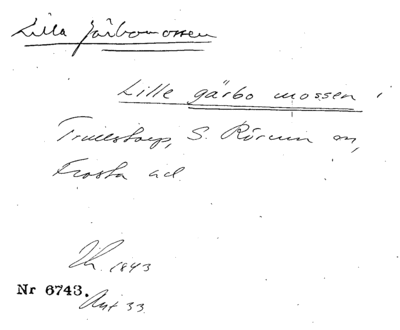 Lilla Järbomossen
Lille gärbo mossen i
Trulstorp, S. Rörum sn,
Frosta hd.
1843
Nr 6743.
Ant 33.